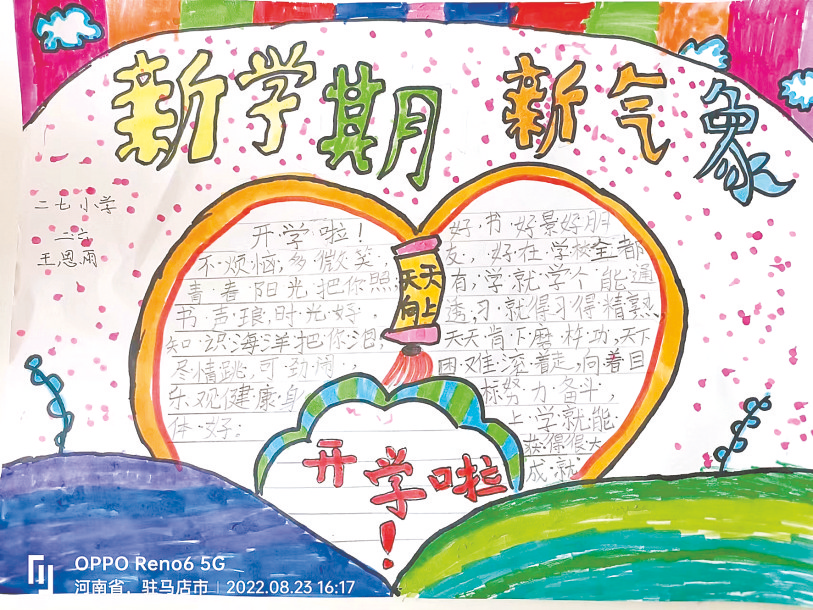 新学期 新气象
二七小学
二六
王思雨
开学啦！
不烦恼,多微笑,
青春阳光把你照
书声琅,时光好,
知识海洋把你泡,
尽情跳,可劲闹,
乐观健康身
体好;
好书好景好朋
友,好在学校全都
有,学就学个能通
透,习就得习得精熟
天天肯下磨杵功,天下
困难滚着走,向着目
标努力奋斗,
上学就能
获得很大
成就
天天
向上
开学啦！
OPPO Reno6 5G
河南省，驻马店市 | 2022.08.23 16:17